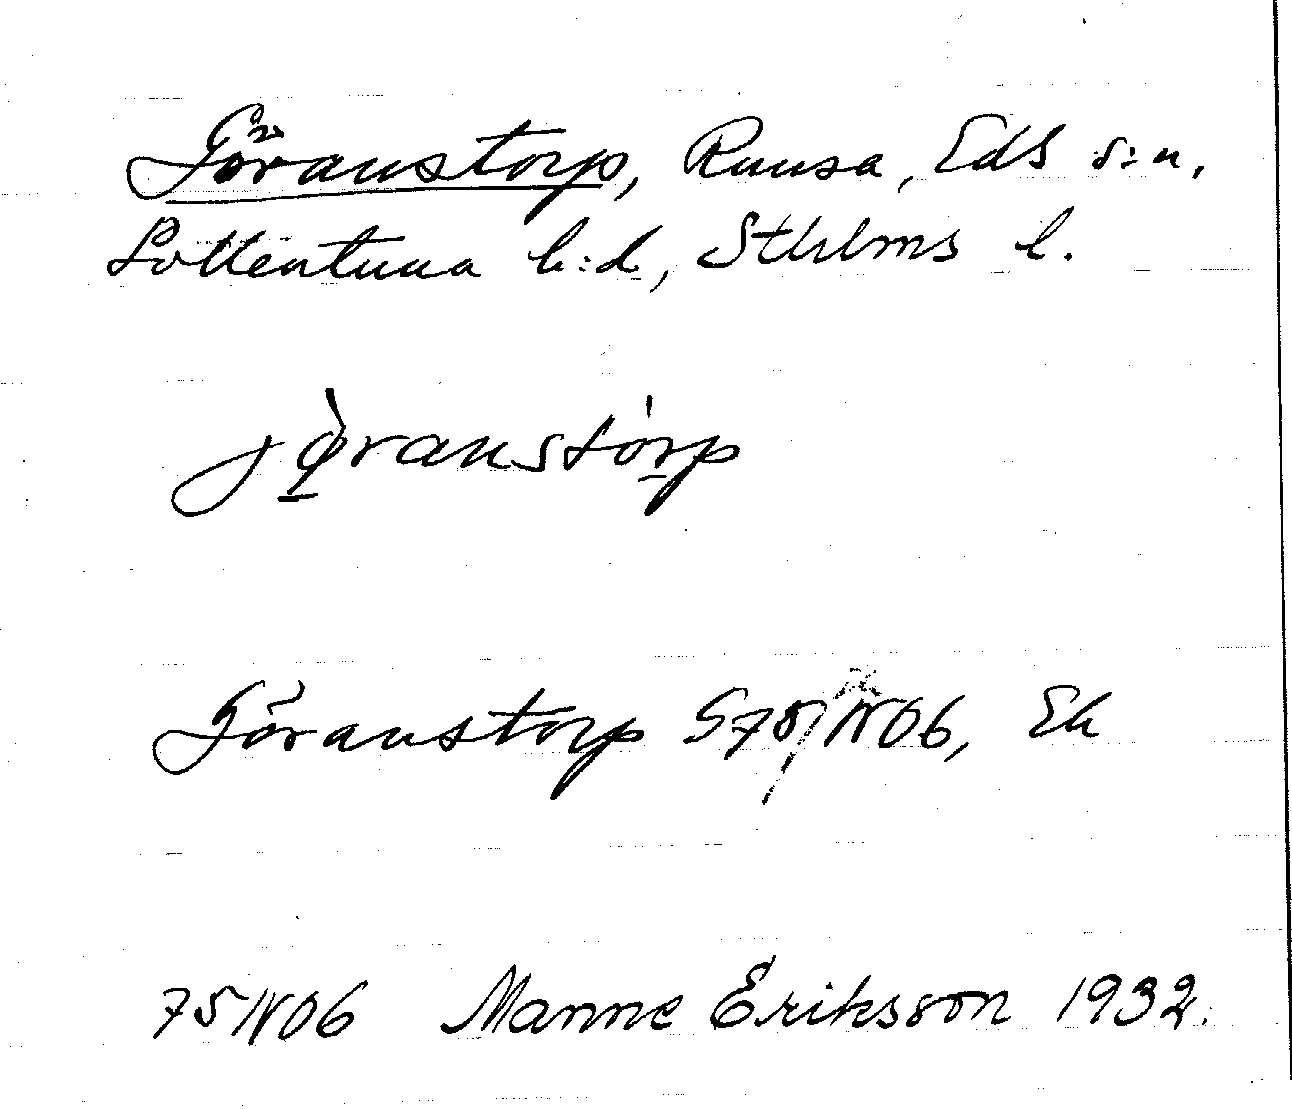 Göranstorp, Runsa, Eds s:n,
Sollentuna h:d, Sthlms l.
jø̀ranstórp
Göranstorp S75NV06, Ek
75NV06 Manne Eriksson 1932.